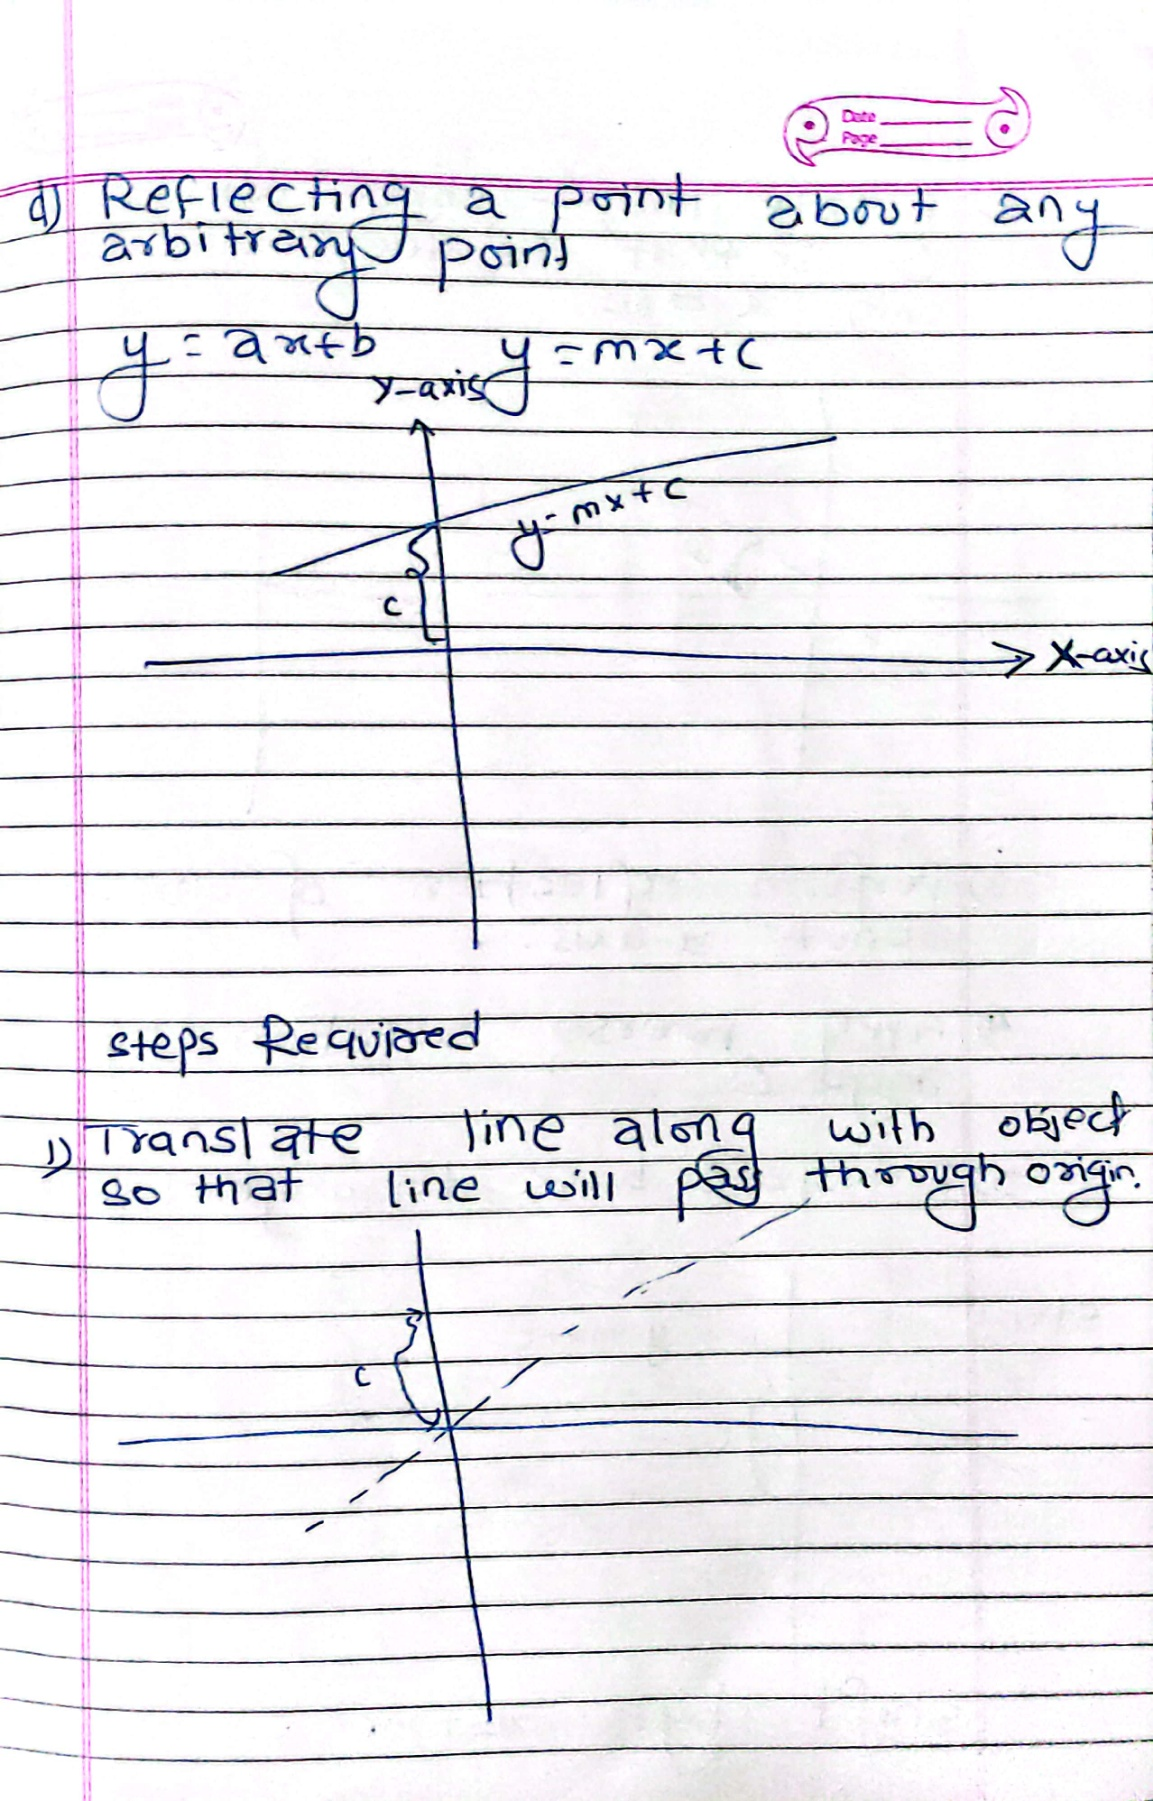 Date
Page
d) Reflecting a point about any
arbitrary point
y = ax+b y = mx+c
Y-axis
y = mx+c
c
X-axis
steps Required
1) Translate line along with object
so that line will pass through origin.
c